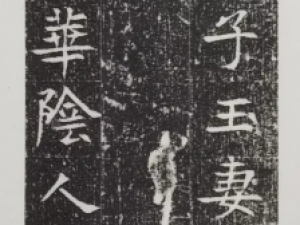 子玉妻
華陰人